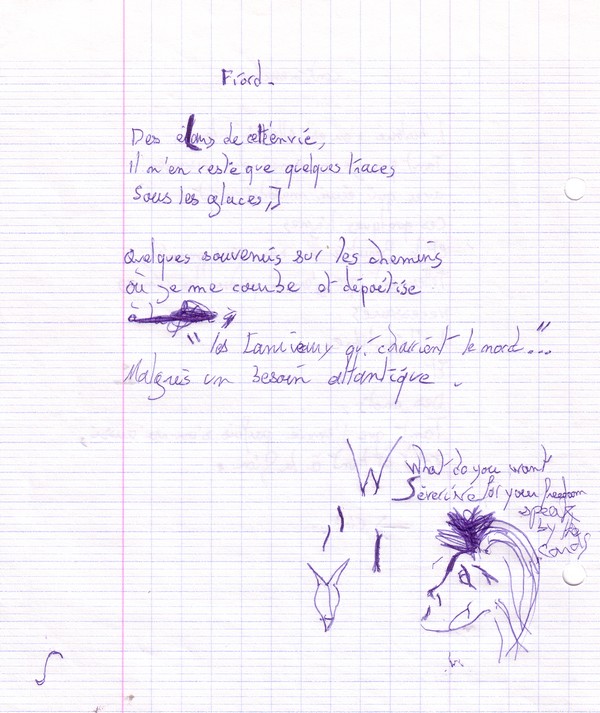 Fiord.
Des élans de cette envie,
Il m'en reste que quelques traces
Sous les glaces,]
Quelques souvenirs sur les chemins
où je me courbe et dépoétise
à
"les Caniveaux qui charrient le mord..."
Malgrés un besoin atlantique.
W What do you want
Séverine for your freedom
speak
by the